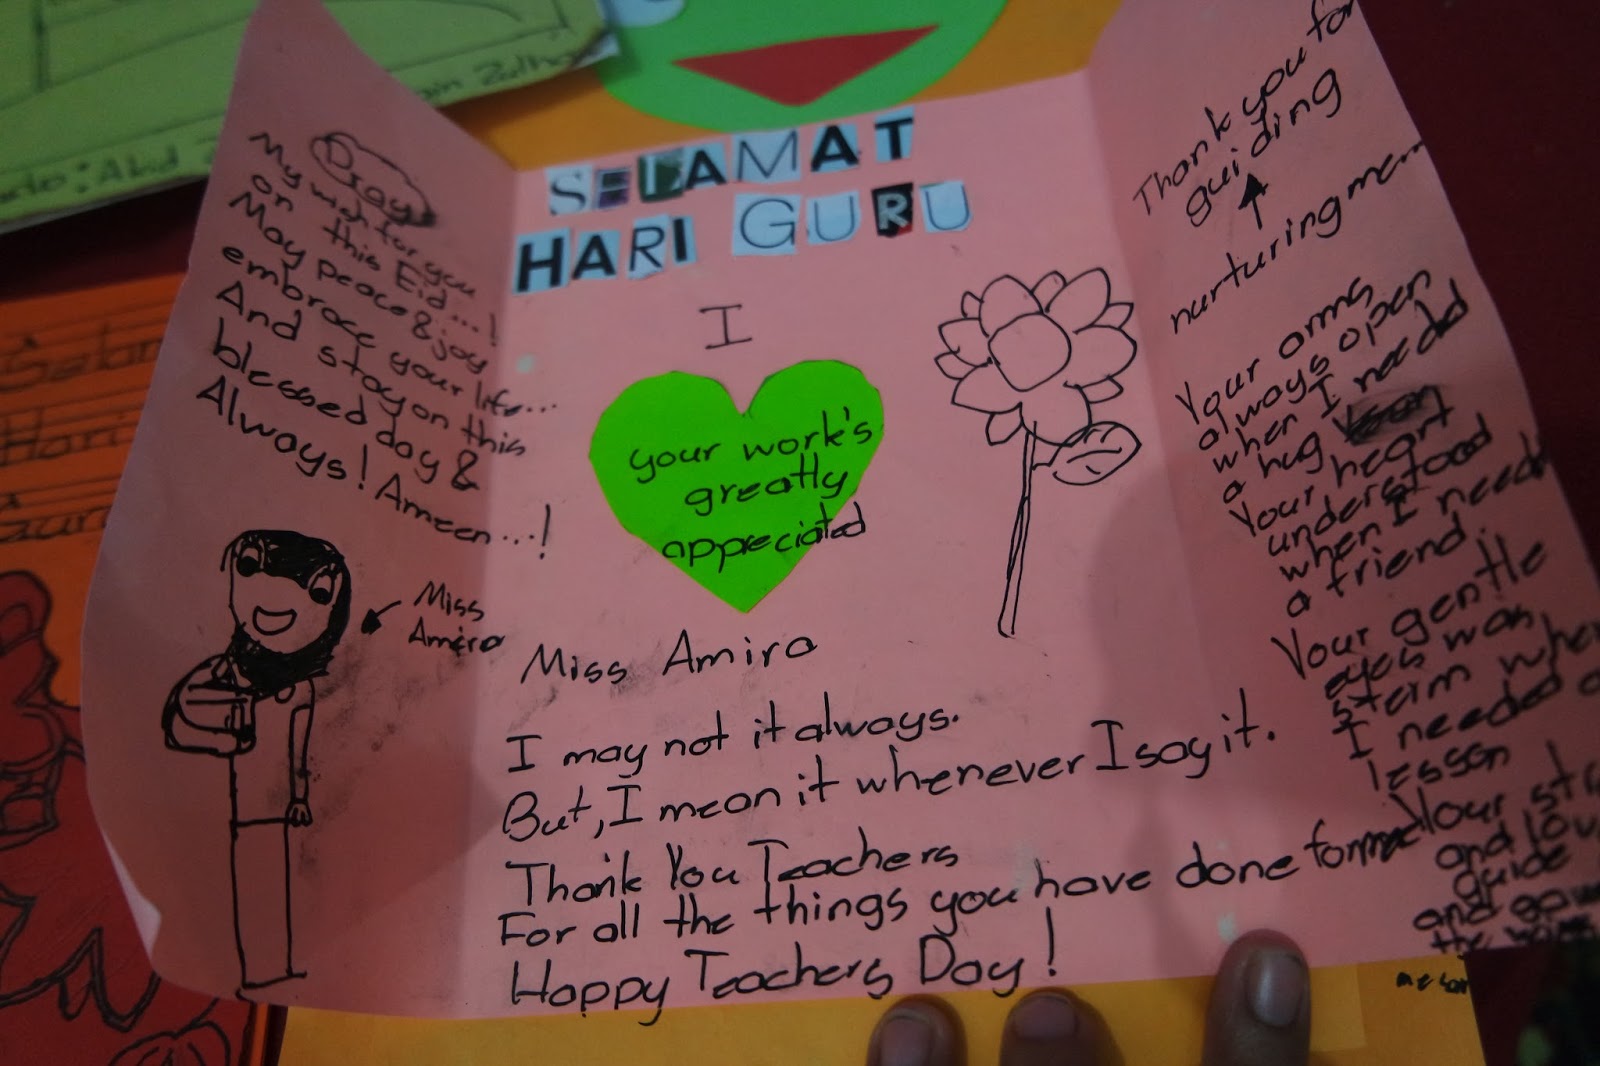 Pray
My wish for you
on this Eid...!
May peace & joy
embrace your life...
And stay on this
blessed day &
Always! Ameen...!
Miss
Amira
SELAMAT
HARI GURU
I
your work's
greatly
appreciated
Miss Amira
I may not it always.
But, I mean it whenever I say it.
Thank You Teachers
For all the things you have done for me
Happy Teachers Day!
Thank you for
guiding
nurturing me
Your arms
always open
when I need
a hug
Your heart
understood
when I need
a friend.
Your gentle
eyes was
when
I needed a
lesson
Your
and
guide
and
Abd
Selam
Hari
Guru